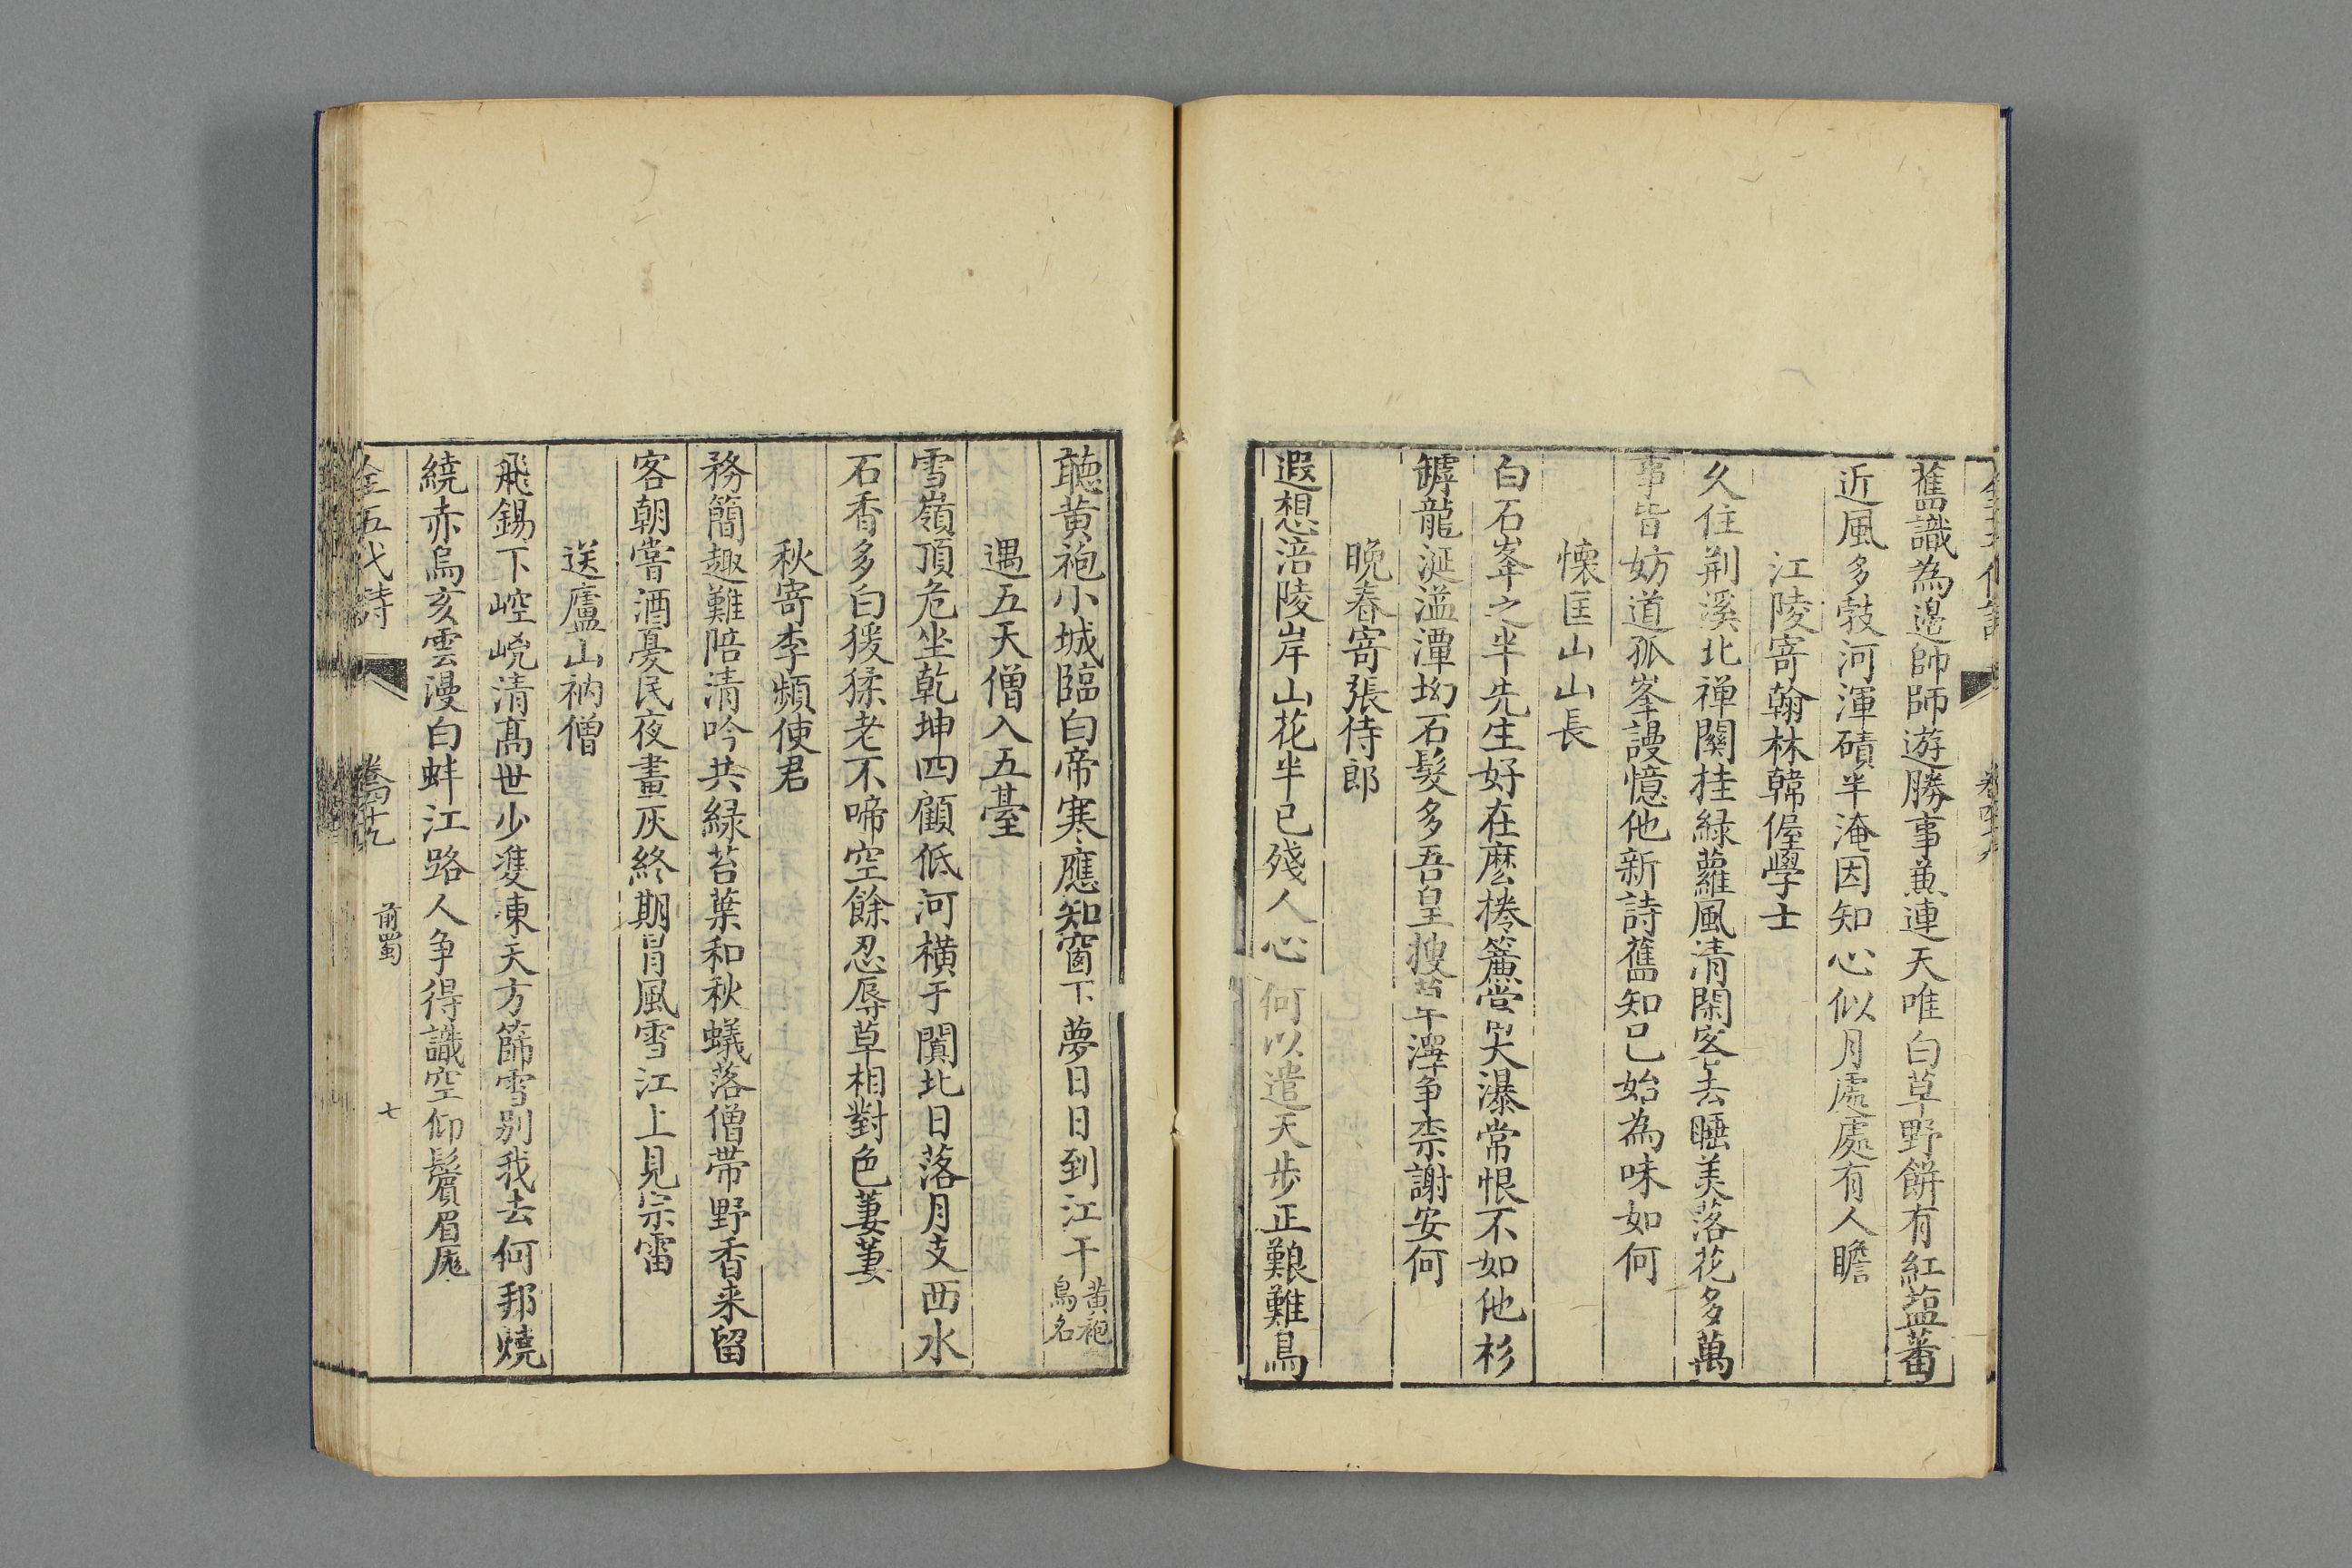 舊識為邊師師遊勝事兼連天唯白草野餅有紅藍蕃
近風多㲉河渾磧半淹因知心似月處處有人瞻
江陵寄翰林韓偓學士
久住荆溪北禅關挂緑蘿風清閑客去睡美落花多萬
事皆妨道孤峯謾憶他新詩舊知已始為味如何
懐匡山山長
白石峯之半先生好在麽捲簾當大瀑常恨不如他杉
罅龍涎溢潭坳石髮多吾皇搜草澤争柰謝安何
晚春寄張侍郎
遐想涪陵岸山花半已殘人心何以遣天步正艱難鳥
聽黄袍小城臨白帝寒應知窗下夢日日到江干黄袍鳥名
遇五天僧入五臺
雪嶺頂危坐乾坤四顧低河横于闐北日落月支西水
石香多白猨猱老不啼空餘忍辱草相對色萋萋
秋寄李頻使君
務簡趣難陪清吟共緑苔葉和秋蟻落僧帶野香来留
客朝嘗酒憂民夜畫灰終期冒風雪江上見宗雷
送廬山衲僧
飛錫下崆峣清髙世少雙凍天方篩雪别我去何邦燒
繞赤烏亥雲漫白蚌江路人争得識空仰鬢眉厖
全五代詩
卷四十九
前蜀
七